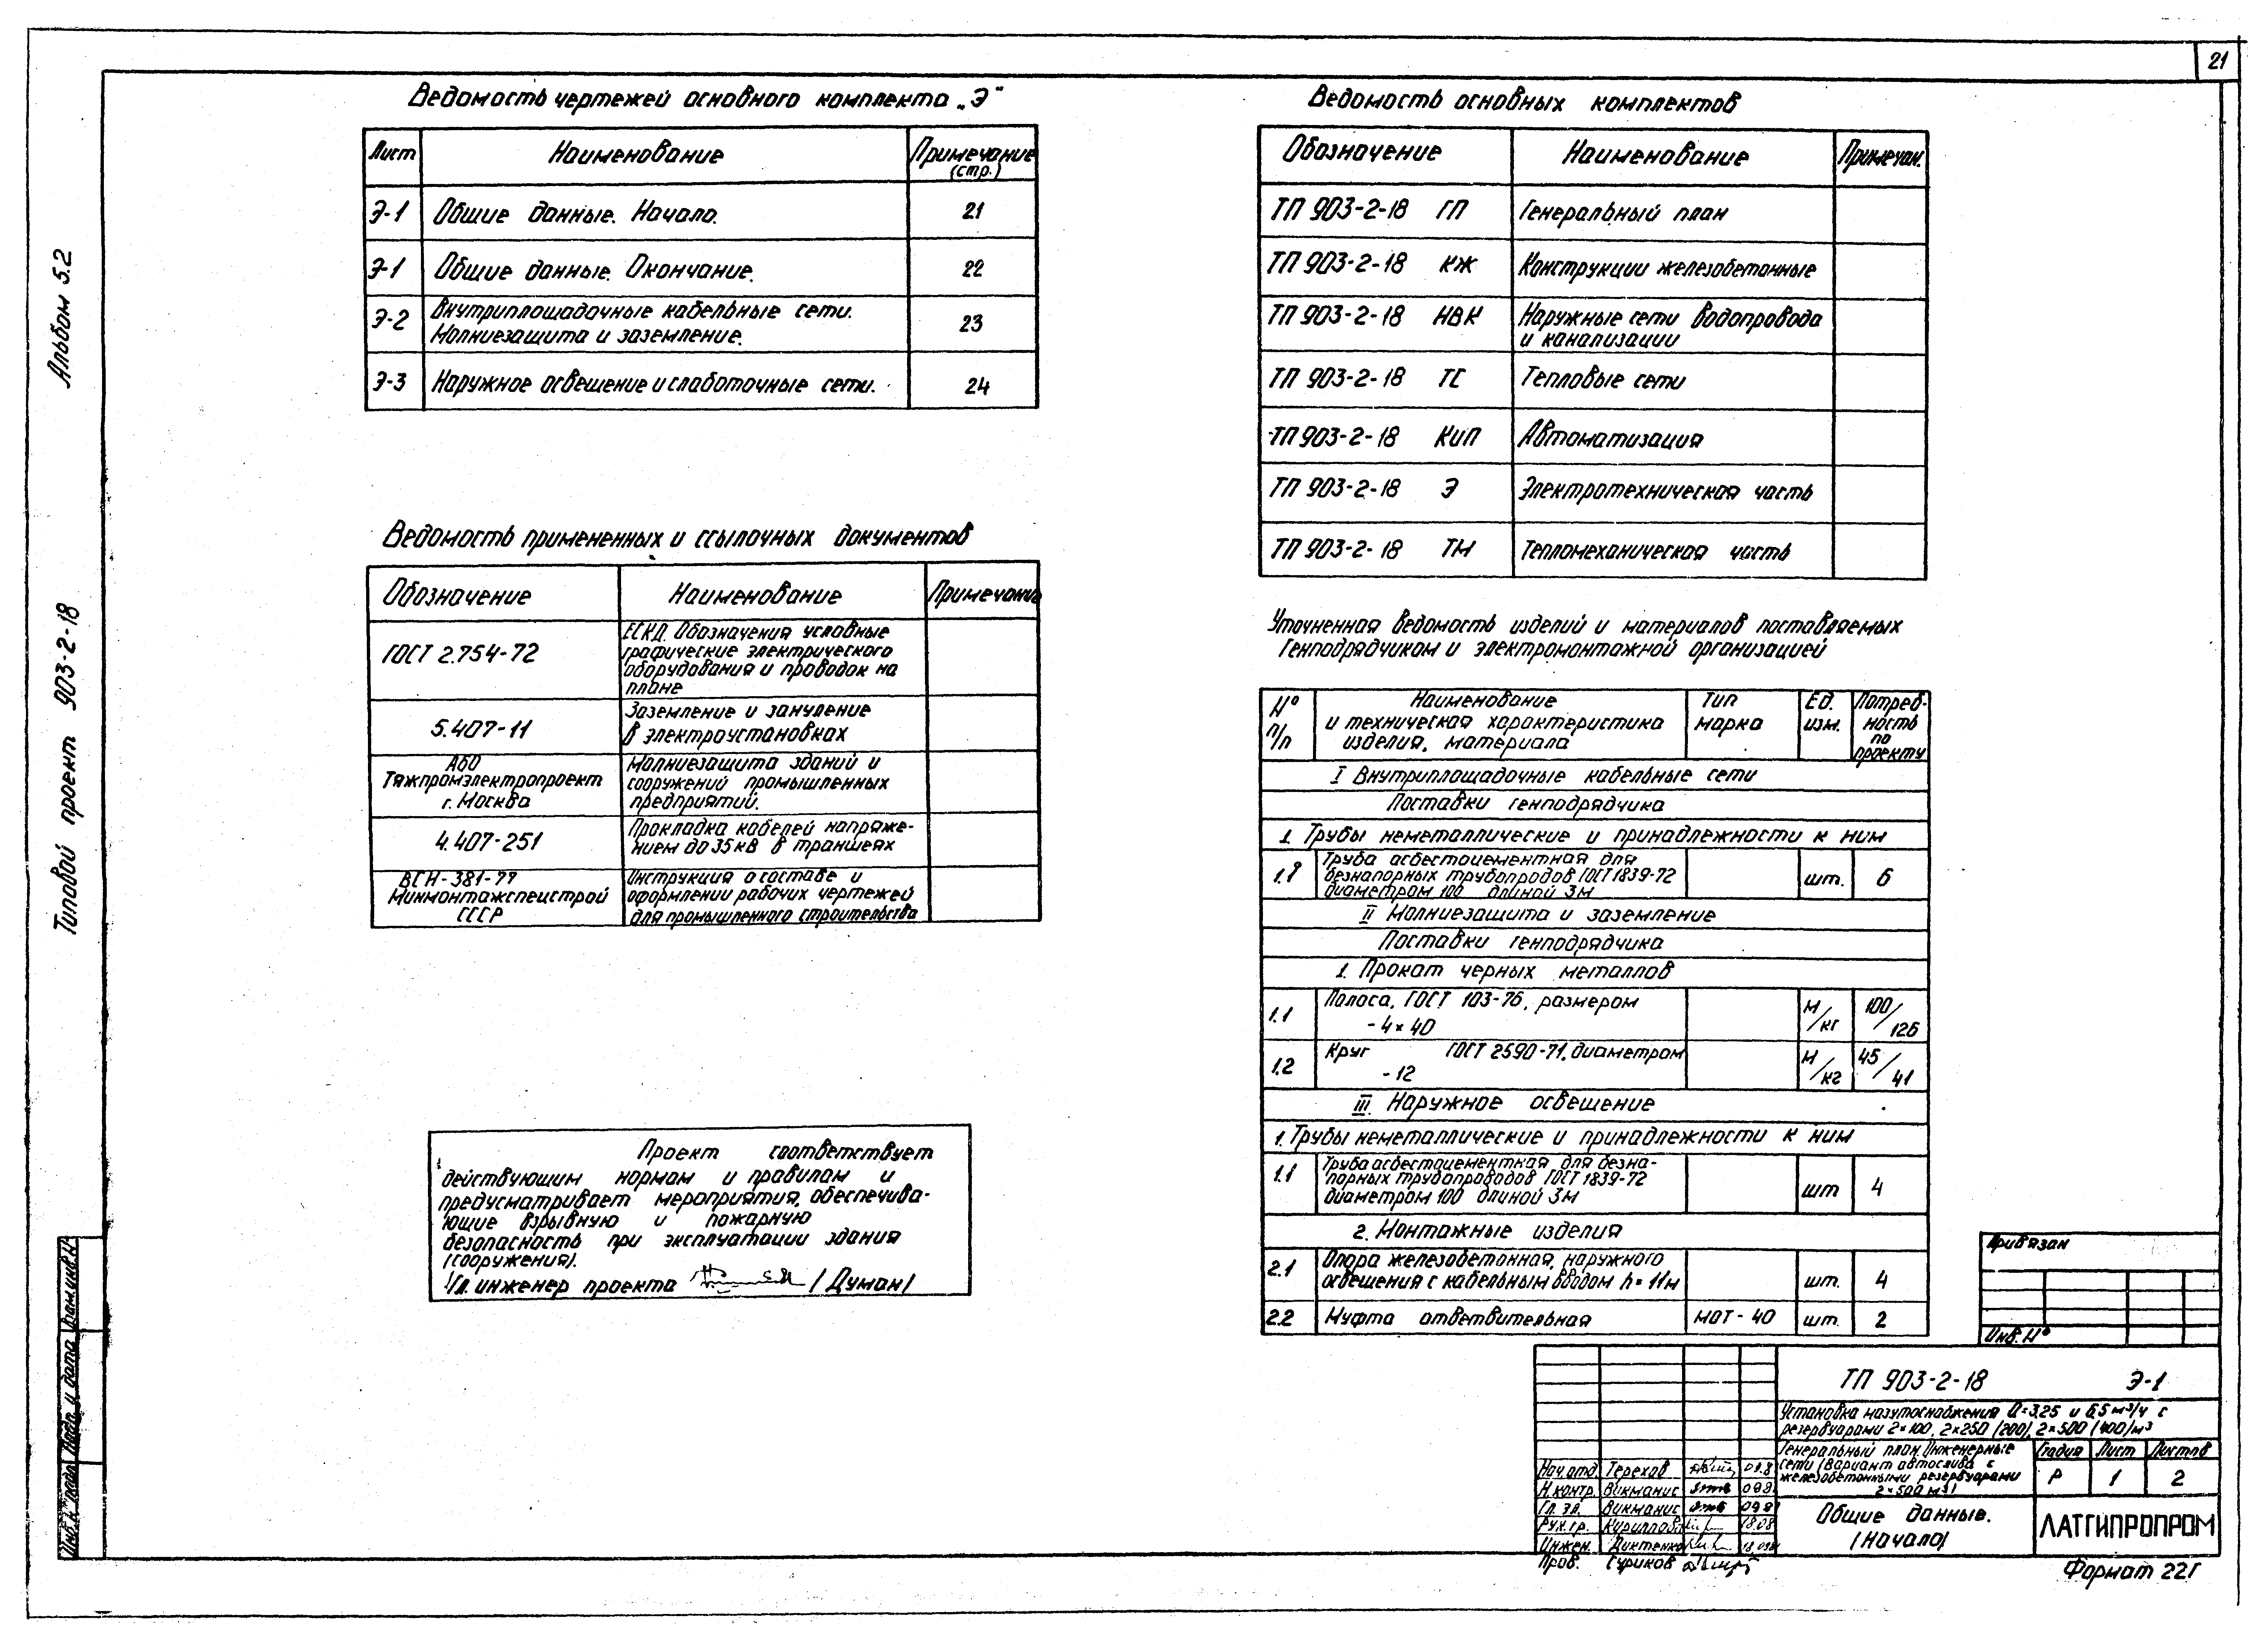 21
Альбом 5.2
Типовой проект 903-2-18
Ведомость чертежей основного комплекта „Э"
Лист Наименование Примечание (стр.)
Э-1 Общие данные. Начало. 21
Э-1 Общие данные. Окончание. 22
Э-2 Внутриплощадочные кабельные сети.
Молниезащита и заземление. 23
Э-3 Наружное освещение и слаботочные сети. 24
Ведомость примененных и ссылочных документов
Обозначение Наименование Примечание
ГОСТ 2.754-72 ЕСКД. Обозначения условные
графические электрического
оборудования и проводок на
плане
5.407-11 Заземление и зануление
в электроустановках
А60
Тяжпромэлектропроект
г. Москва
Молниезащита зданий и
сооружений промышленных
предприятий.
4.407-251 Прокладка кабелей напряже-
нием до 35кВ в траншеях
ВСН-381-77
Минмонтажспецстрой
СССР
Инструкция о составе и
оформлении рабочих чертежей
для промышленного строительства
Проект соответствует
действующим нормам и правилам и
предусматривает мероприятия, обеспечива-
ющие взрывную и пожарную
безопасность при эксплуатации здания
(сооружения).
Гл. инженер проекта /Думан/
Ведомость основных комплектов
Обозначение Наименование Примечан.
ТП 903-2-18 ГП Генеральный план
ТП 903-2-18 КЖ Конструкции железобетонные
ТП 903-2-18 НВК Наружные сети водопровода
и канализации
ТП 903-2-18 ТС Тепловые сети
ТП 903-2-18 КиП Автоматизация
ТП 903-2-18 Э Электротехническая часть
ТП 903-2-18 ТМ Тепломеханическая часть
Уточненная ведомость изделий и материалов поставляемых
Генподрядчиком и электромонтажной организацией
№ п/п Наименование
и техническая характеристика
изделия, материала
Тип марка
Ед. изм.
Потреб-
ность
по
проекту
I Внутриплощадочные кабельные сети
Поставки генподрядчика
1. Трубы неметаллические и принадлежности к ним
1.1 Труба асбестоцементная для
безнапорных трубопродов ГОСТ 1839-72
диаметром 100 длиной 3м шт. 6
II Молниезащита и заземление
Поставки генподрядчика
1. Прокат черных металлов
1.1 Полоса, ГОСТ 103-76, размером
-4×40 м/кг 100/126
1.2 Круг ГОСТ 2590-71, диаметром
-12 м/кг 45/41
III. Наружное освещение
1. Трубы неметаллические и принадлежности к ним
1.1 Труба асбестоцементная для безна-
порных трубопроводов ГОСТ 1839-72
диаметром 100 длиной 3м шт 4
2. Монтажные изделия
2.1 Опора железобетонная, наружного
освещения с кабельным вводом h=11м шт. 4
2.2 Муфта ответвительная МОТ-40 шт. 2
Привязан
Инв. №
ТП 903-2-18 Э-1
Установка мазутоснабжения Q=3,25 и 6,5 м³/ч с
резервуарами 2×100, 2×250 (200), 2×500 (400) м³
Генеральный план. Инженерные
сети (Вариант автослива с
железобетонными резервуарами
2×500 м³)
Стадия Лист Листов
Р 1 2
Общие данные.
(Начало)
ЛАТГИПРОПРОМ
Нач. отд. Терехов
Н. контр. Викманис
Гл. эл. Викманис
Рук. гр.
Инжен.
Пров. Суриков
Формат 22Г
Взам. инв. №
Подп. и дата
Инв. № подл.